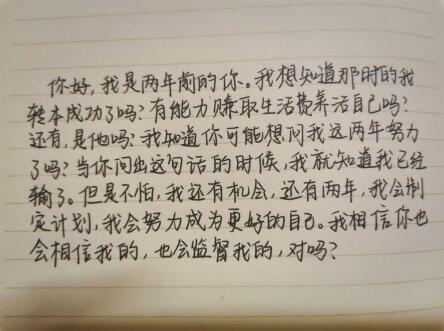 你好,我是两年前的你。我想知道那时的我
转本成功了吗?有能力赚取生活费养活自己吗?
还有,是他吗?我知道你可能想问我这两年努力
了吗?当你问出这句话的时候,我就知道我已经
输了。但是不怕,我还有机会,还有两年,我会制
定计划,我会努力成为更好的自己。我相信你也
会相信我的,也会监督我的,对吗?